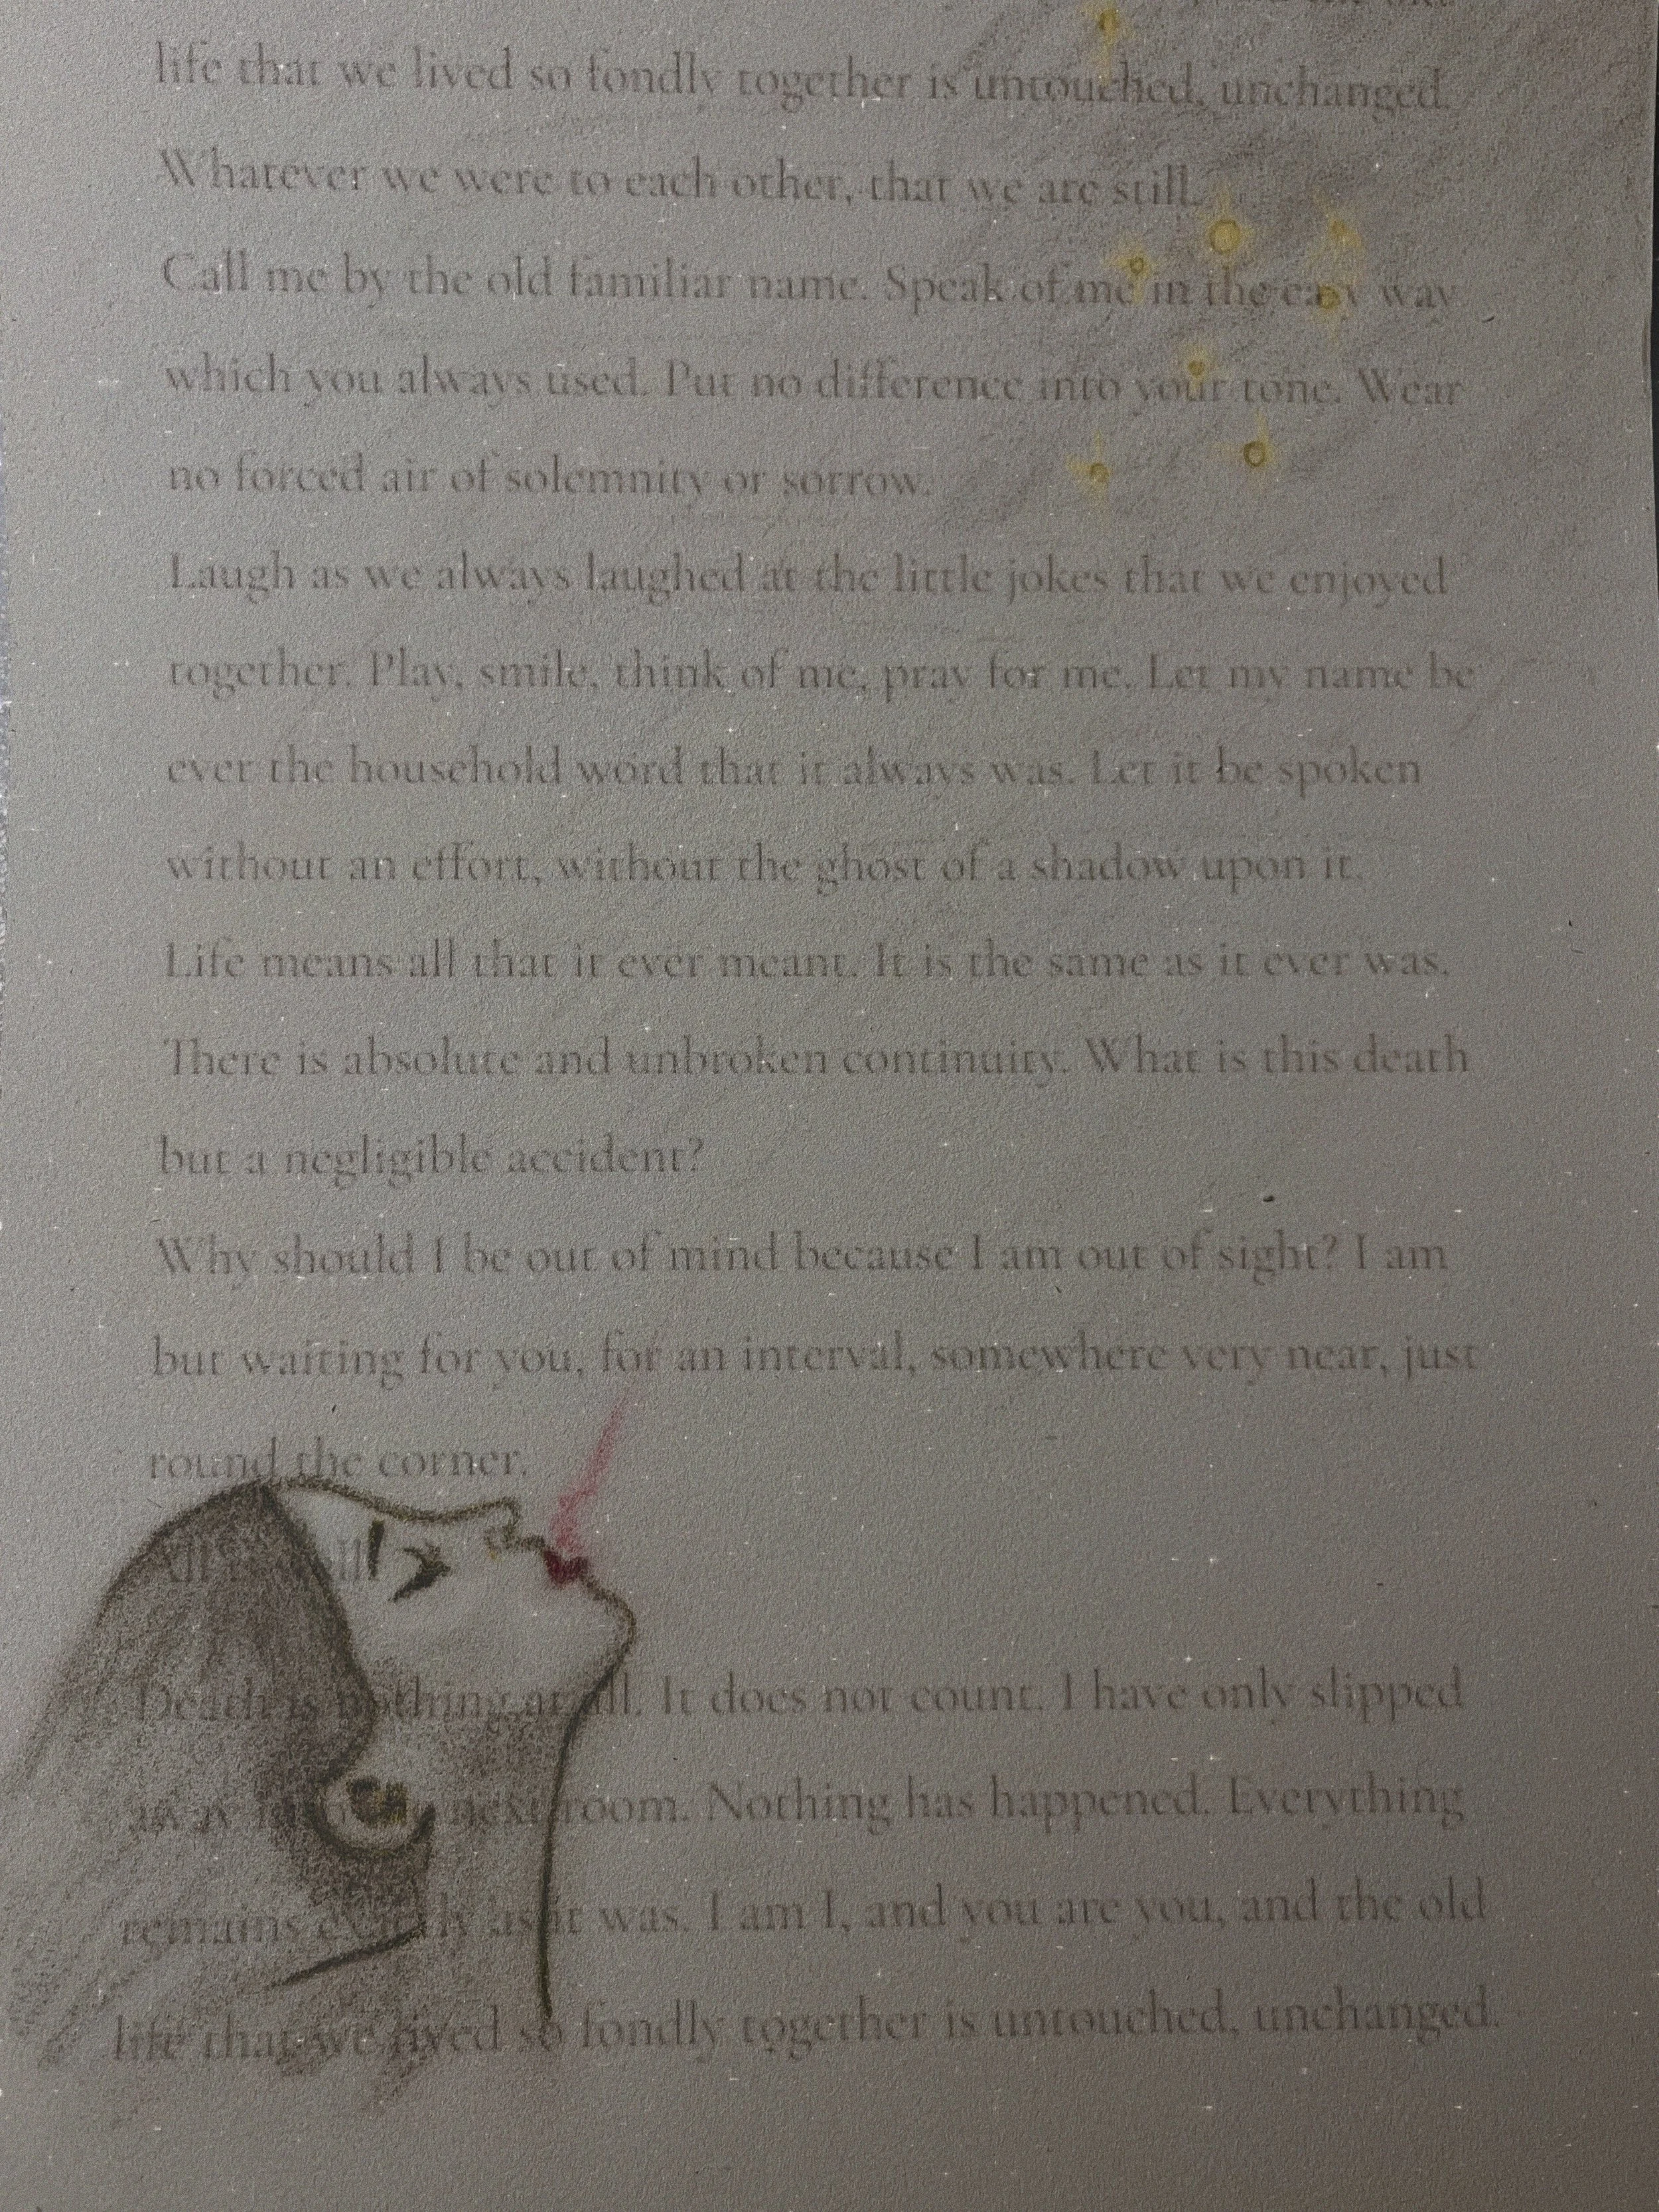 life that we lived so fondly together is untouched, unchanged.
Whatever we were to each other, that we are still.
Call me by the old familiar name. Speak of me in the easy way
which you always used. Put no difference into your tone. Wear
no forced air of solemnity or sorrow.
Laugh as we always laughed at the little jokes that we enjoyed
together. Play, smile, think of me, pray for me. Let my name be
ever the household word that it always was. Let it be spoken
without an effort, without the ghost of a shadow upon it.
Life means all that it ever meant. It is the same as it ever was.
There is absolute and unbroken continuity. What is this death
but a negligible accident?
Why should I be out of mind because I am out of sight? I am
but waiting for you, for an interval, somewhere very near, just
round the corner.
Death is nothing at all. It does not count. I have only slipped
away into next room. Nothing has happened. Everything
remains exactly as it was. I am I, and you are you, and the old
life that we lived so fondly together is untouched, unchanged.